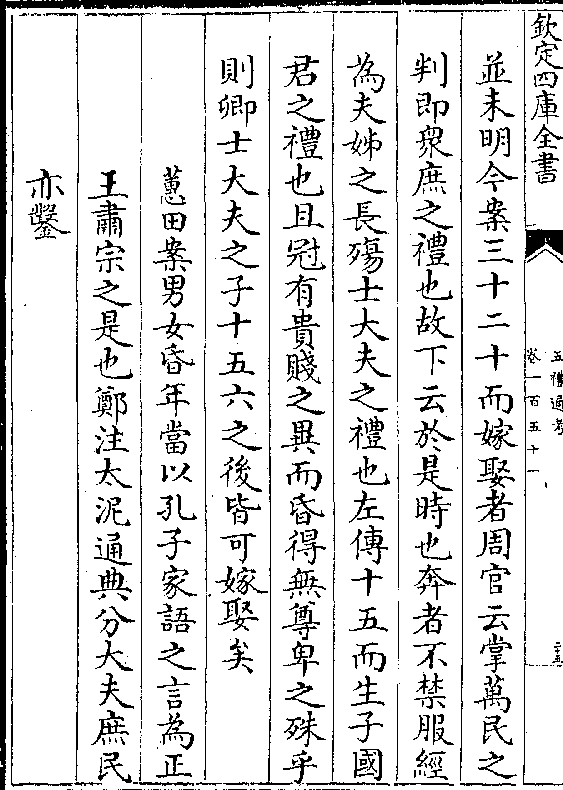 欽定四庫全書
五禮通考
卷一百五十一
二五
並未明今案三十二十而嫁娶者周官云掌萬民之
判即衆庶之禮也故下云於是時也奔者不禁服經
為夫姊之長殤士大夫之禮也左傳十五而生子國
君之禮也且冠有貴賤之異而昏得無尊卑之殊乎
則卿士大夫之子十五六之後皆可嫁娶矣
蕙田案男女昏年當以孔子家語之言為正
王肅宗之是也鄭注太泥通典分大夫庶民
亦鑿